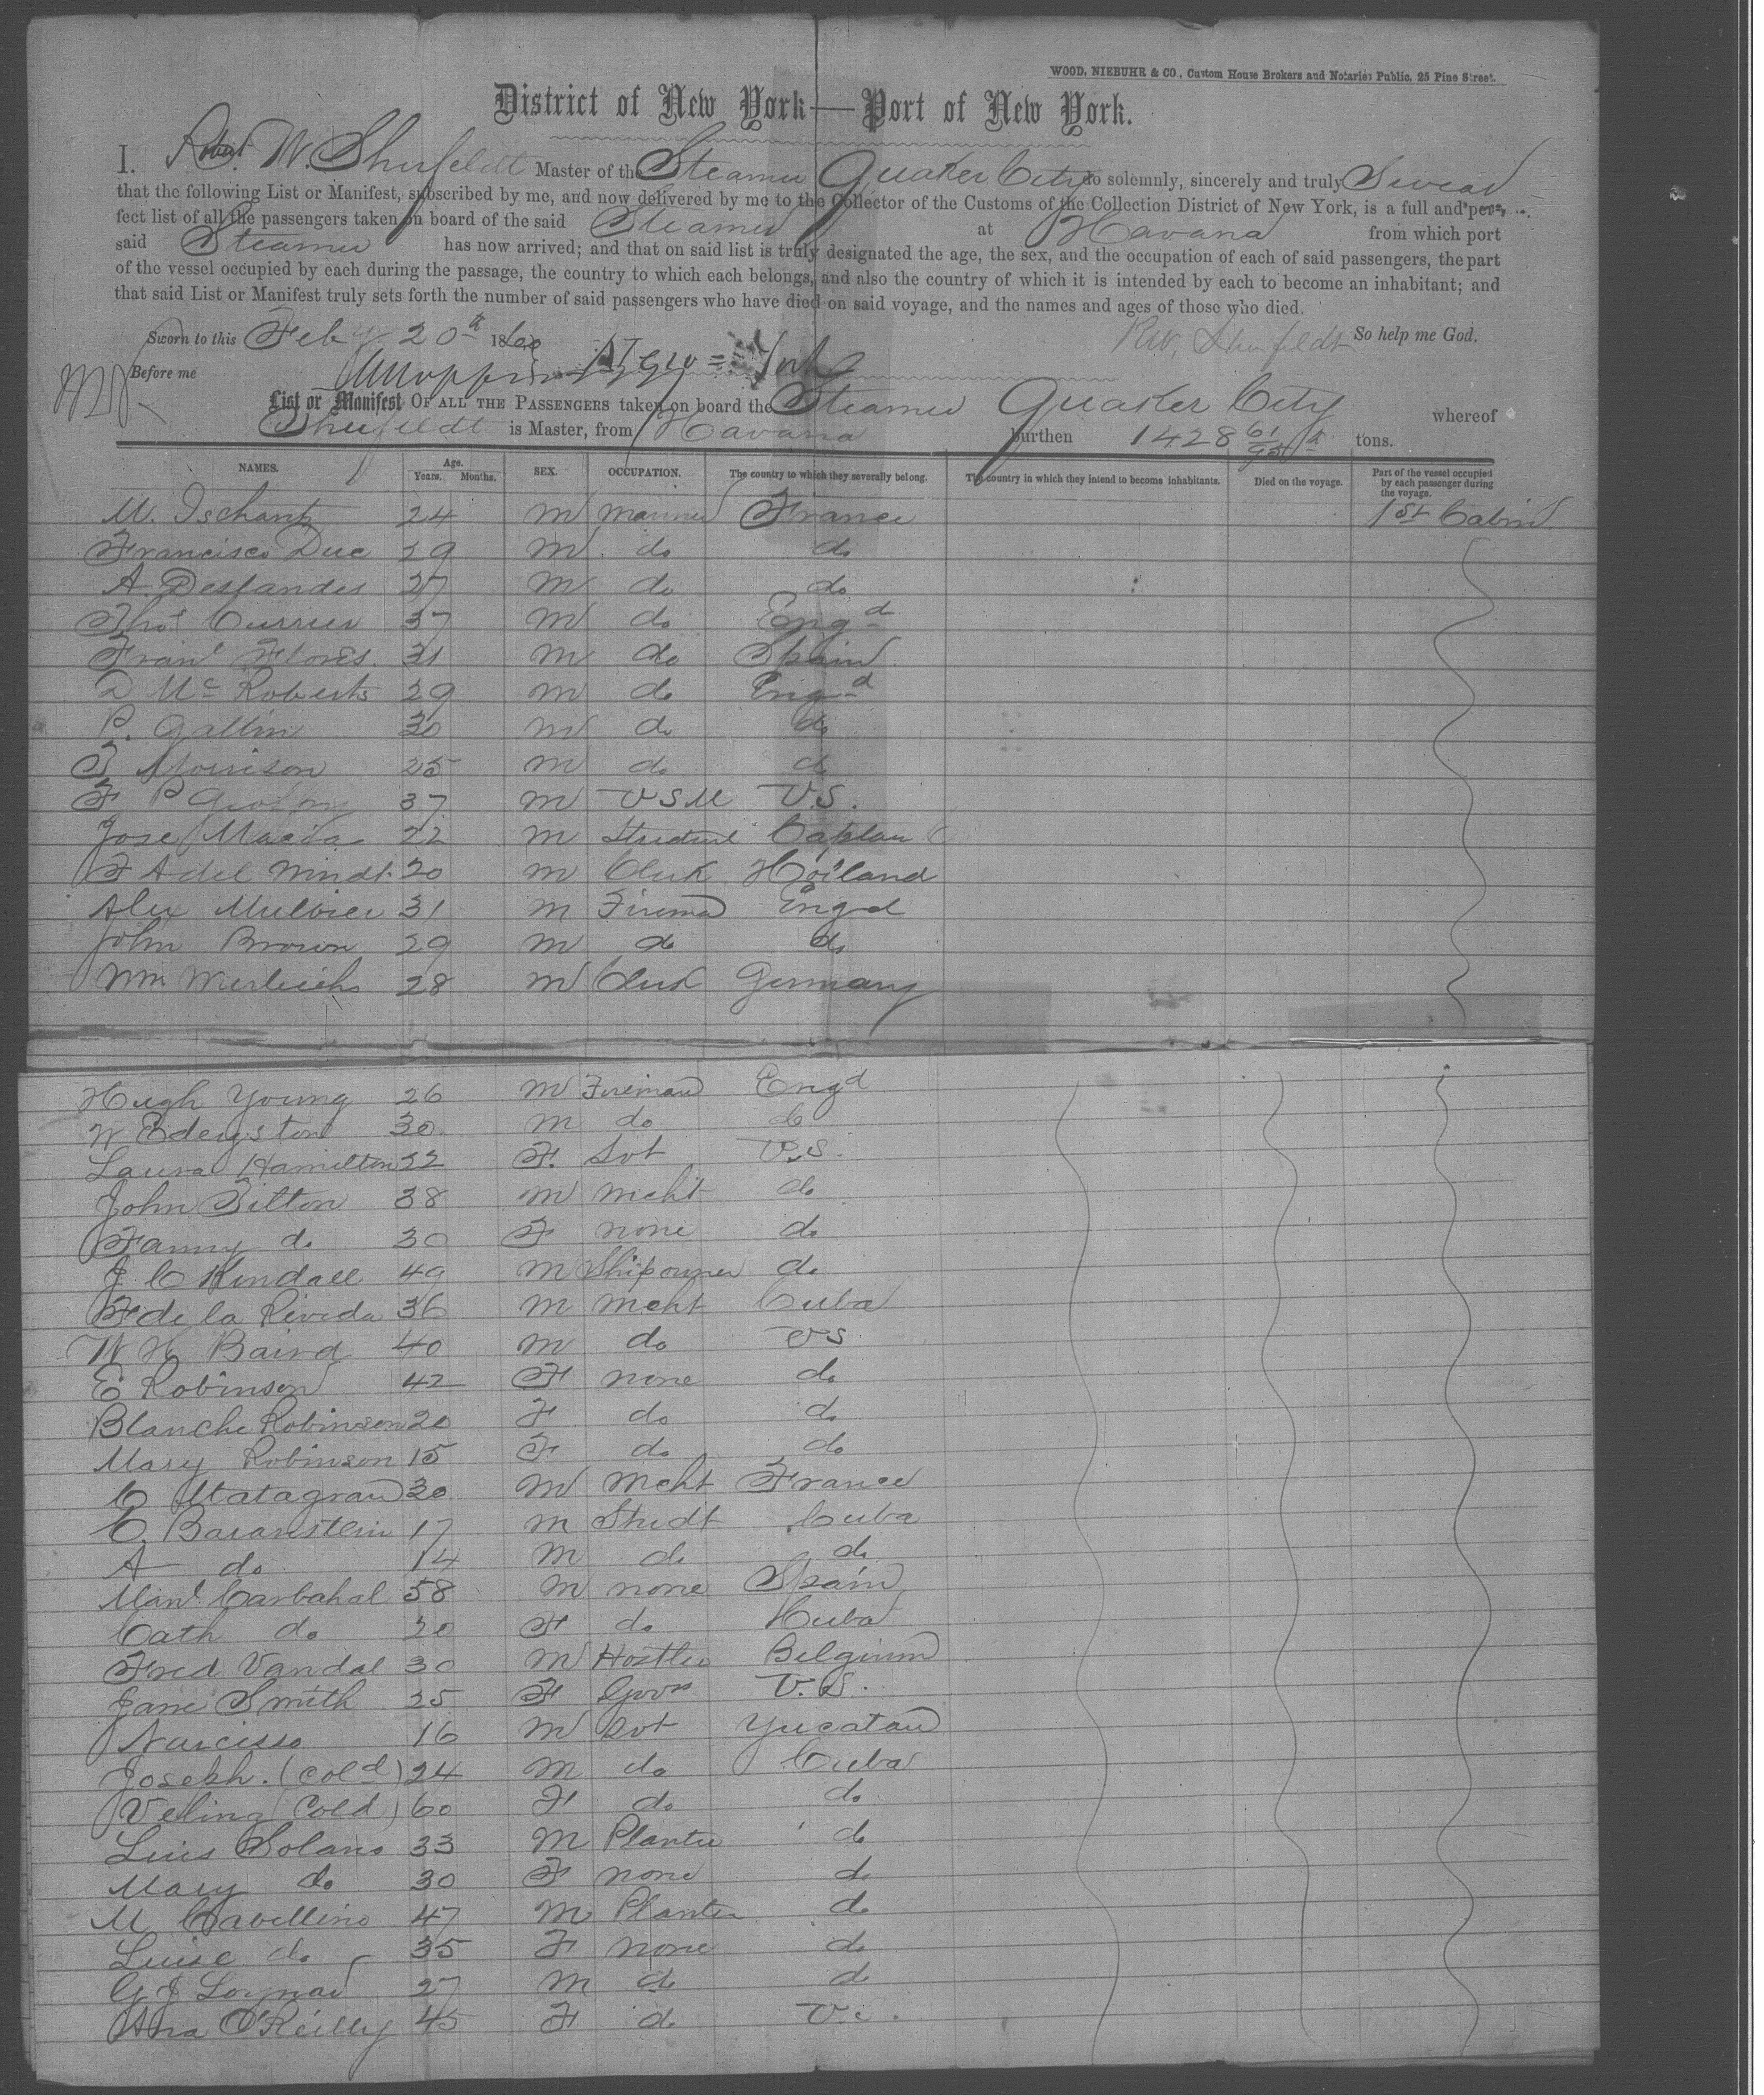 WOOD, NIEBUHR & CO., Custom House Brokers and Notaries Public, 25 Pine Street.
District of New York—Port of New York.
I, Robert W. Shufeldt Master of the Steamer Quaker City do solemnly, sincerely and truly Swear
that the following List or Manifest, subscribed by me, and now delivered by me to the Collector of the Customs of the Collection District of New York, is a full and per-
fect list of all the passengers taken on board of the said Steamer at Havana from which port
said Steamer has now arrived; and that on said list is truly designated the age, the sex, and the occupation of each of said passengers, the part
of the vessel occupied by each during the passage, the country to which each belongs, and also the country of which it is intended by each to become an inhabitant; and
that said List or Manifest truly sets forth the number of said passengers who have died on said voyage, and the names and ages of those who died.
Sworn to this Feby 20th 1860 R W. Shufeldt So help me God.
Before me
List or Manifest OF ALL THE PASSENGERS taken on board the Steamer Quaker City whereof
Shufeldt is Master, from Havana burthen 1428 61/95 tons.
NAMES. Age. Years. Months. SEX. OCCUPATION. The country to which they severally belong. The country in which they intend to become inhabitants. Died on the voyage. Part of the vessel occupied by each passenger during the voyage.
M. 24 M Mariner France 1st Cabin
Francisco Duc 29 M do do
A. Desfandes 27 M do do
Thos Currier 37 M do Engd
Franl Flores 31 M do Spain
D Mc Roberts 29 M do Engd
P. Gallin 30 M do do
Morrison 25 M do do
F P 37 M USM U.S.
Jose Macia 22 M Student
F Adel Windt 20 M Clerk Holland
Alex 31 M Fireman Engd
John Brown 29 M do do
Wm 28 M Clerk Germany
Hugh Young 26 M Fireman Engd
W Ederyston 30 M do do
Laura Hamilton 22 F. Svt U.S.
John Tilton 38 M Mcht do
Fanny do 30 F none do
J C Kendall 49 M Shipowner do
F de la Rivida 36 M Mcht Cuba
W H Baird 40 M do US.
E Robinson 42 F none do
Blanche Robinson 20 F do do
Mary Robinson 15 F do do
C Matagran 30 M Mcht France
C. Baranstein 17 M Studt Cuba
A do 14 M do do
Manl Carbahal 58 M none Spain
Cath do 20 F do Cuba
Fred Vandal 30 M Hostler Belgium
Jane Smith 25 F Govss U.S.
Narcisso 16 M Svt Yucatan
Joseph. (cold) 24 M do Cuba
Veling (Cold) 60 F do do
Luis Solano 33 M Planter do
Mary do 30 F none do
M Cavellino 47 M Planter do
Luise do 35 F none do
G J Loynad 27 M do do
Ana O'Reilly 45 F do